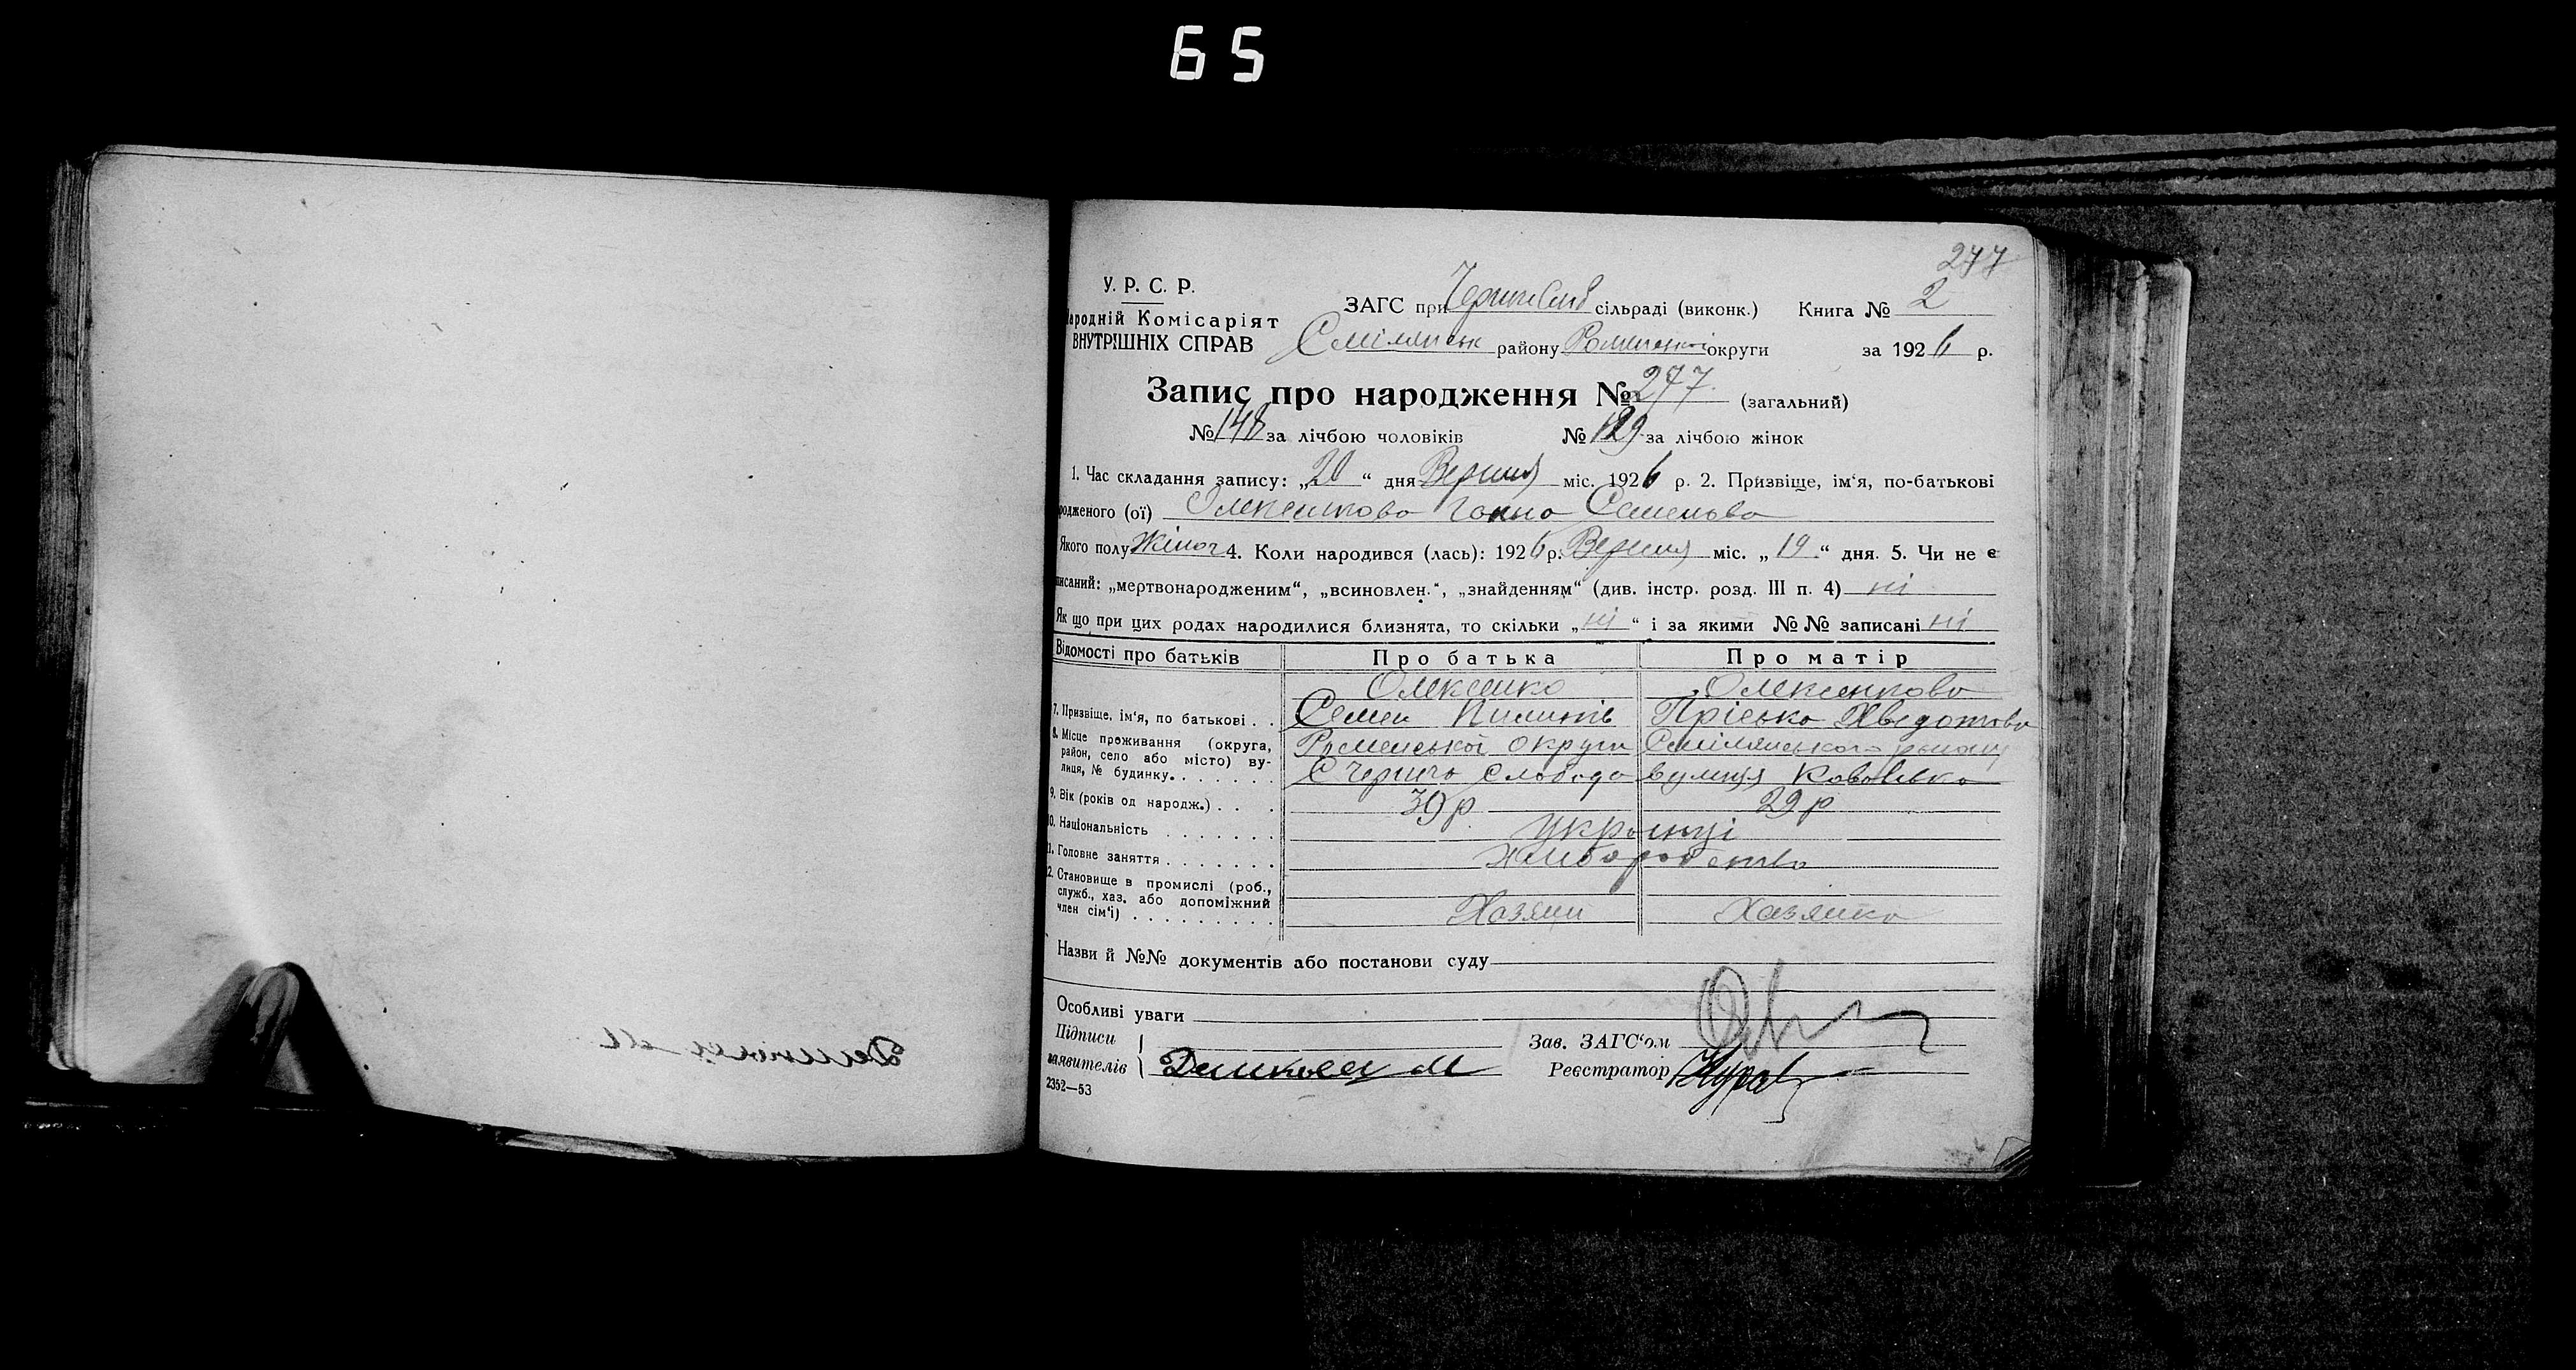 65
277
У. Р. С. Р.
ародній Комісаріят
ВНУТРІШНІХ СПРАВ
ЗАГС при сільраді (виконк.) Книга № 2
Смілянськ району Роменської округи за 1926 р.
Запис про народження № 277 (загальний)
№ 148 за лічбою чоловіків № 129 за лічбою жінок
1. Час складання запису: „20“ дня Вересня міс. 1926 р. 2. Призвіще, ім‘я, по-батькові
родженого (ої) Олексенкова Ганна Семенова
Якого полу Жіноч 4. Коли народився (лась): 1926 р. Вересня міс. „19“ дня. 5. Чи не є
писаний: „мертвонародженим“, „всиновлен.“, „знайденням“ (див. інстр. розд. III п. 4) ні
Як що при цих родах народилися близнята, то скільки „ні“ і за якими №№ записані ні
Відомості про батьків Про батька Про матір
Олексенко Олексенкова
7. Призвіще, ім‘я, по батькові . . Семен Пилипів Пріська Хведотова
8. Місце проживання (округа, район, село або місто) вулиця, № будинку. Роменської округи Смілянського району
С Черпича Слобода вулиця
9. Вік (років од народж.) . . . 39 р 29 р
10. Національність Українці
11. Головне заняття Хліборобство
12. Становище в промислі (роб., служб., хаз. або допоміжний член сім‘ї) Хазяин Хазяйка
Назви й №№ документів або постанови суду
Особливі уваги
Підписи
заявителів
Зав. ЗАГС‘ом
Реєстратор
2352—53